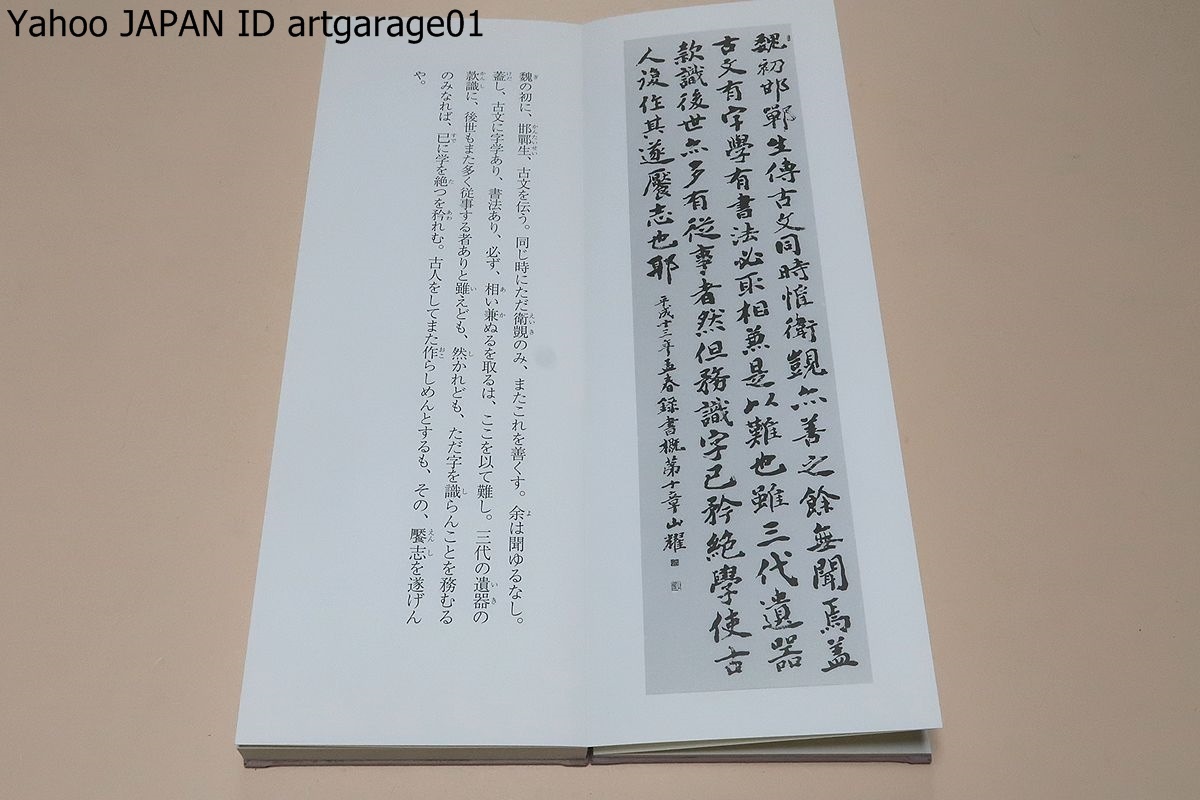 Yahoo JAPAN ID artgarage01
魏初邯鄲生傳古文同時惟衛覬亦善之餘無聞焉蓋
古文有字學有書法必取相兼是以難也雖三代遺器
款識後世亦多有從事者然但務識字已矜絶學使古
人復作其遂饜志也耶
平成十三年孟春録書概第十章山耀
魏の初に、邯鄲生、古文を伝う。同じ時にただ衛覬のみ、またこれを善くす。余は聞ゆるなし。
蓋し、古文に字学あり、書法あり、必ず、相い兼ぬるを取るは、ここを以て難し。三代の遺器の
款識に、後世もまた多く従事する者ありと雖えども、然かれども、ただ字を識らんことを務むる
のみなれば、已に学を絶つを矜れむ。古人をしてまた作らしめんとするも、その、饜志を遂げん
や。